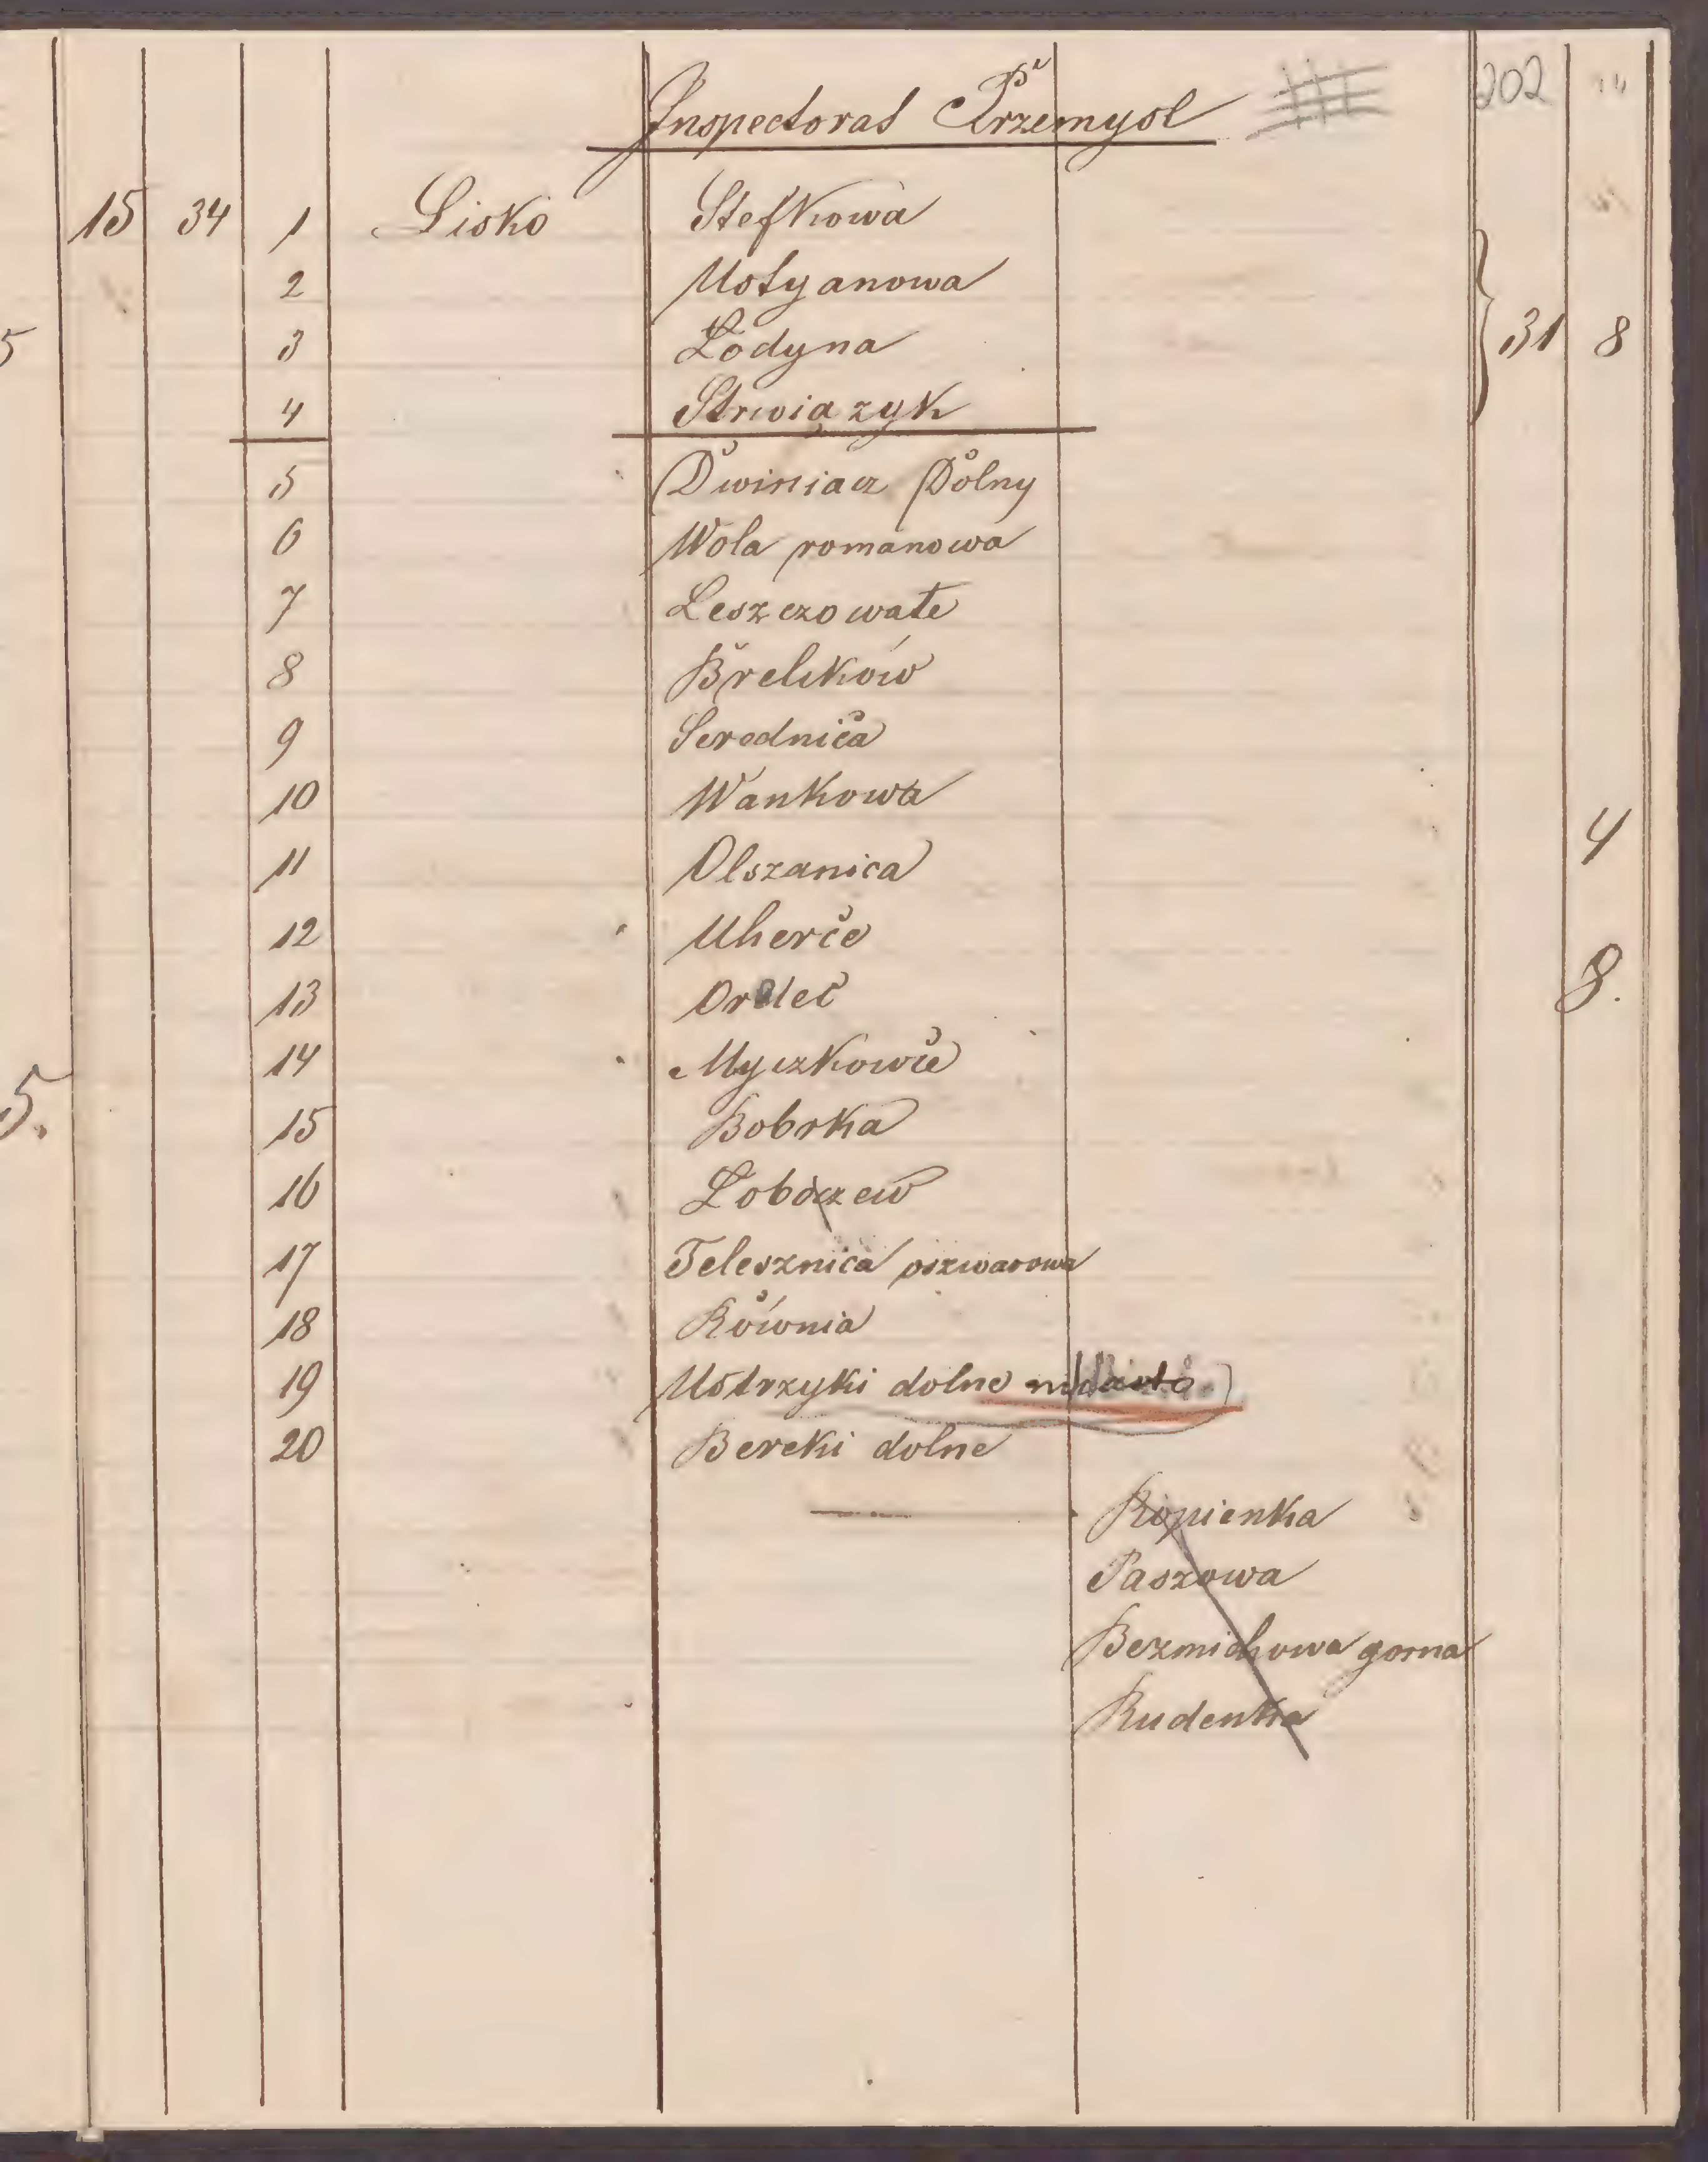 202
Inspectorat Przemysl
15 34 1 Lisko Stefkowa
2 Ustyanowa
3 Łodyna 31 8
4 Strwiązyk
5 Dwiniacz Dolny
6 Wola romanowa
7 Leszczowate
8 Brelików
9 Serednica
10 Wankowa 4
11 Olszanica
12 Uherce
13 Orelec 8.
14 Myczkowce
15 Bobrka
16 Łobozew
17 Telesznica oszwarowa
18 Równia
19 Ustrzyki dolne miasto
20 Bereki dolne
Ropienka
Paszowa
Bezmichowa gorna
Rudenka
5
5.